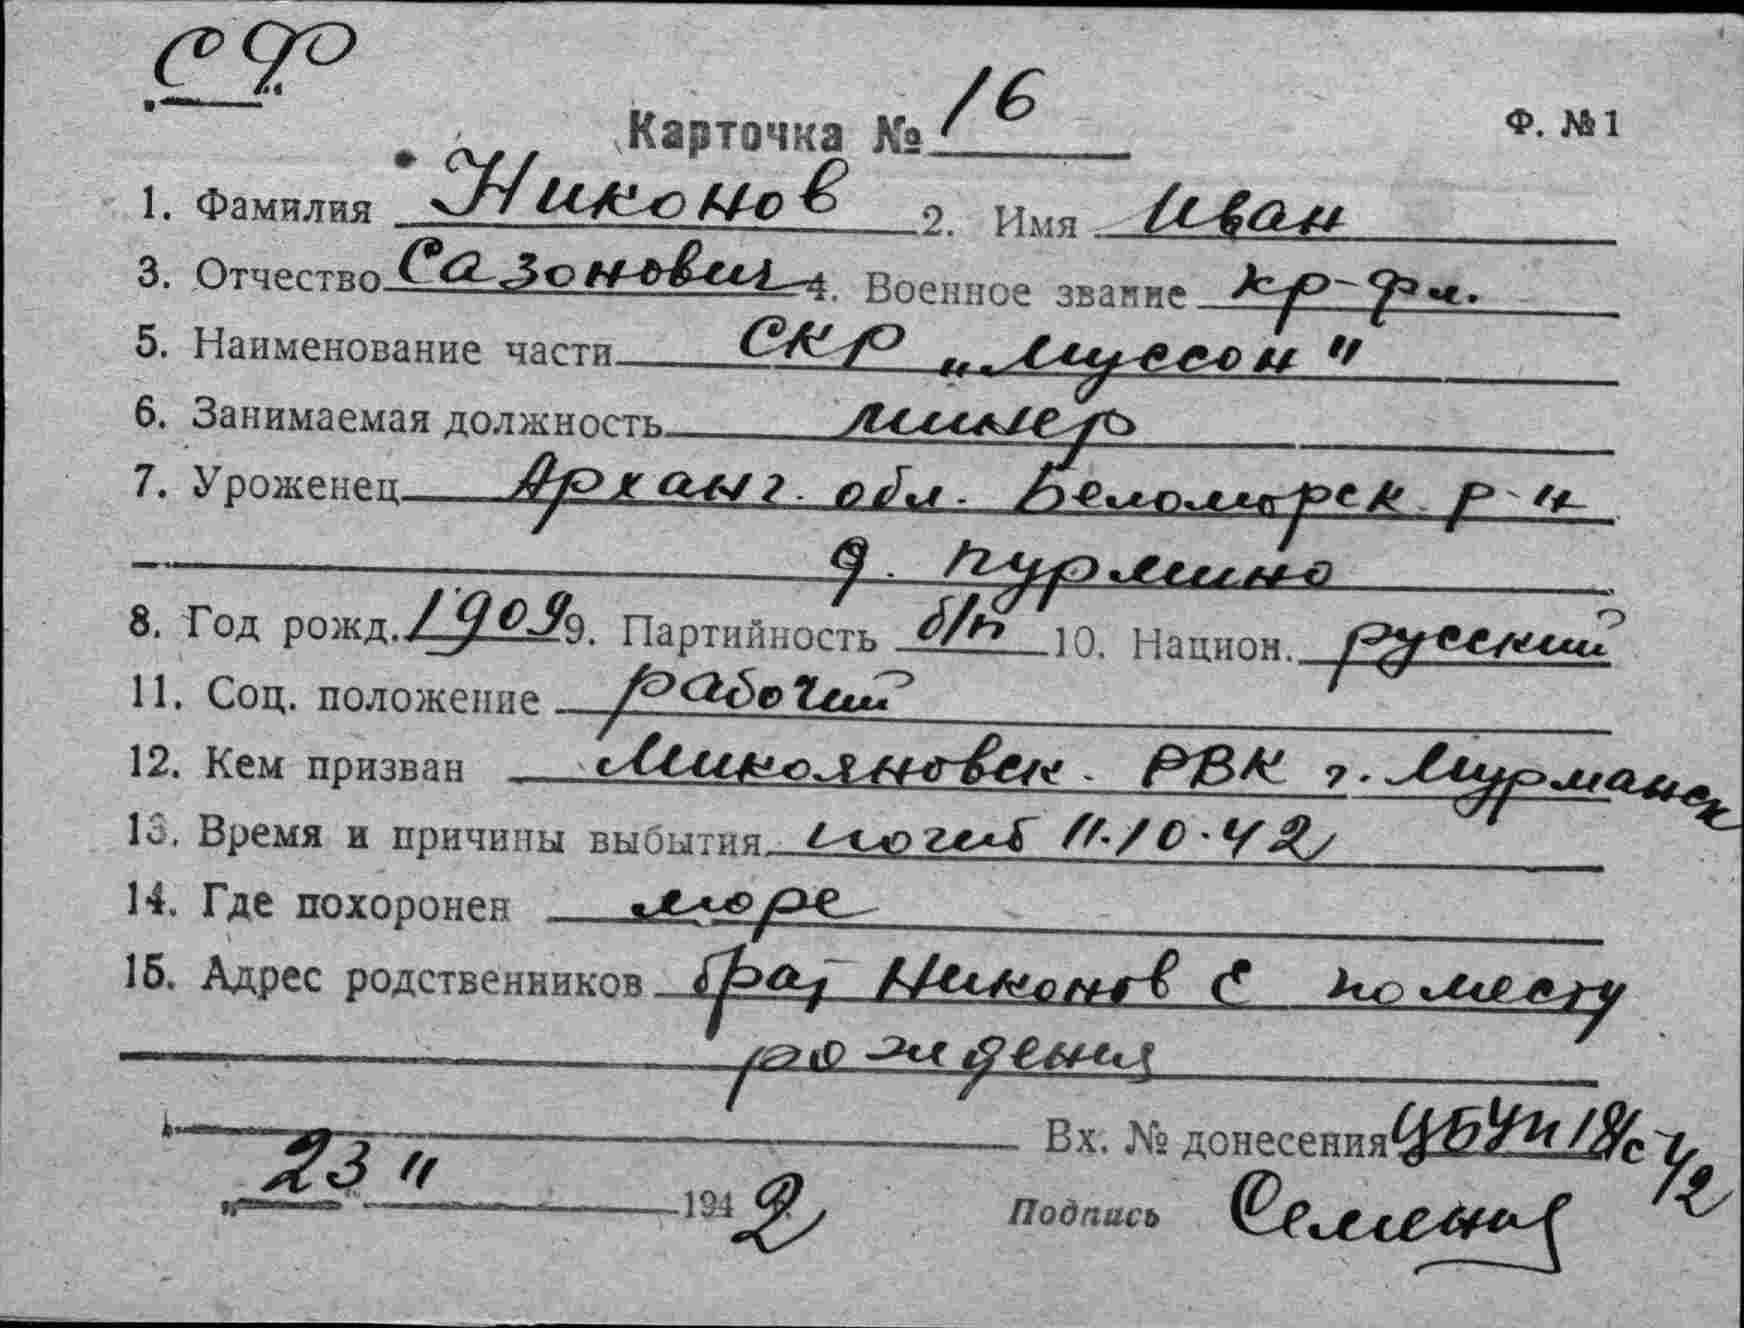 СФ
Карточка № 16
Ф. № 1
1. Фамилия Никонов 2. Имя Иван
3. Отчество Сазонович 4. Военное звание кр-фл.
5. Наименование части СКР „Муссон"
6. Занимаемая должность минер
7. Уроженец Арханг. обл. Беломорск. р-н
д. Пурмино
8. Год рожд. 1909 9. Партийность б/п 10. Национ. русский
11. Соц. положение рабочий
12. Кем призван Микояновск. РВК г. Мурманск
13. Время и причины выбытия погиб 11.10.42
14. Где похоронен море
15. Адрес родственников брат Никонов Е по месту
рождения
Вх. № донесения 18/с
„23" 1942 Подпись Семенов